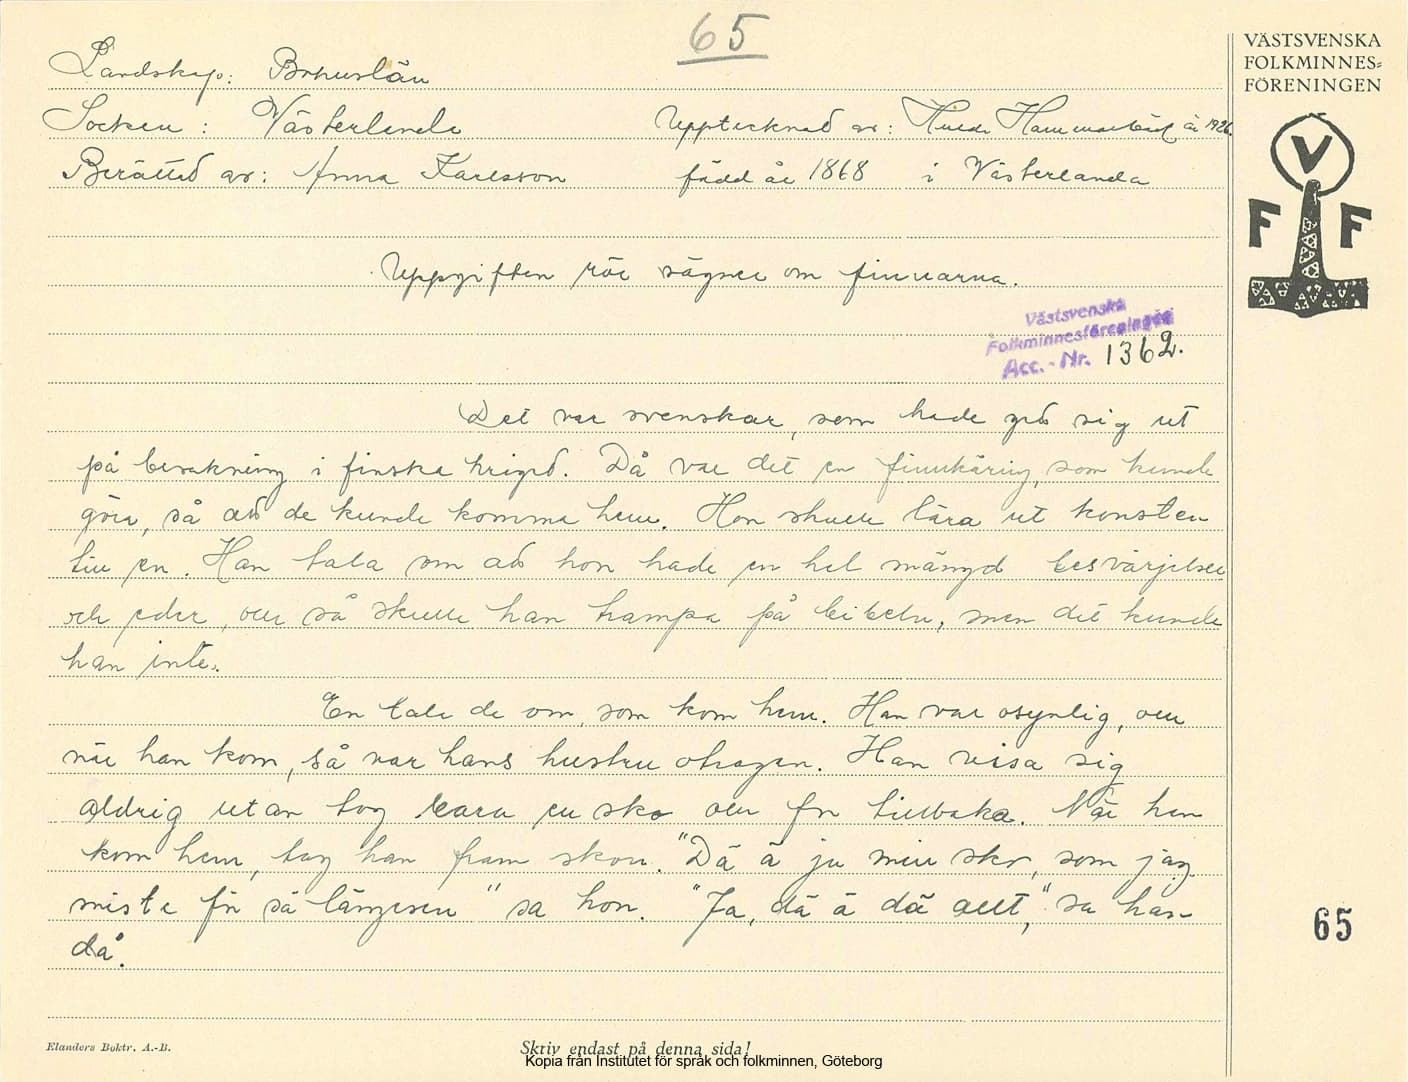 65
VÄSTSVENSKA
FOLKMINNES=
FÖRENINGEN
V
F F
Landskap: Bohuslän
Socken: Västerlanda Upptecknad av: Hulda Hammarbäck år 1926.
Berättad av: Anna Karlsson född år 1868 i Västerlanda
Uppgiften rör sägner om finnarna.
Västsvenska
Folkminnesföreningen
Acc.-Nr. 1362.
Det var svenskar, som hade gett sig ut
på bevakning i finska kriget. Då var det en finnkäring, som kunde
göra, så att de kunde komma hem. Hon skulle lära ut konsten
till en. Han tala om att hon hade en hel mängd besvärjelser
och eder, och så skulle han trampa på bibeln, men det kunde
han inte.
En tala de om, som kom hem. Han var osynlig, och
när han kom, så var hans hustru otrogen. Han visa sig
aldrig utan tog bara en sko och for tillbaka. När han
kom hem, tog han fram skon. "Dä ä ju min sko, som jag
miste för så längesen" sa hon. "Ja, dä ä dä allt," sa han
då.
65
Elanders Boktr. A.-B.
Skriv endast på denna sida!
Kopia från Institutet för språk och folkminnen, Göteborg